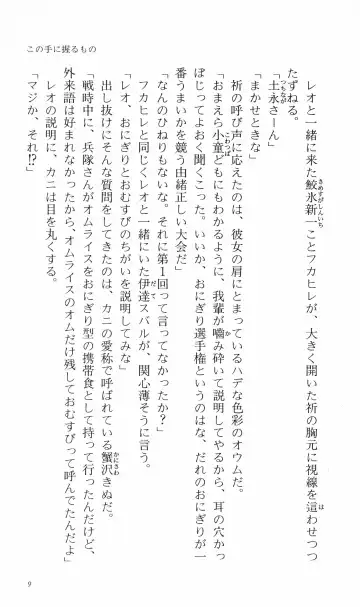 この手に握るもの
レオと一緒に来た鮫氷新一ことフカヒレが、大きく開いた祈の胸元に視線を這わせつつ
たずねる。
「土永さーん」
「まかせときな」
祈の呼び声に応えたのは、彼女の肩にとまっているハデな色彩のオウムだ。
「おまえら小童どもにもわかるように、我輩が噛み砕いて説明してやるから、耳の穴かっ
ぽじってよおく聞くこった。いいか、おにぎり選手権というのはな、だれのおにぎりが一
番うまいかを競う由緒正しい大会だ」
「なんのひねりもないな。それに第１回って言ってなかったか？」
フカヒレと同じくレオと一緒にいた伊達スバルが、関心薄そうに言う。
「レオ、おにぎりとおむすびのちがいを説明してみな」
出し抜けにそんな質問をしてきたのは、カニの愛称で呼ばれている蟹沢きぬだ。
「戦時中に、兵隊さんがオムライスをおにぎり型の携帯食として持って行ったんだけど、
外来語は好まれなかったから、オムライスのオムだけ残しておむすびって呼んでたんだよ」
レオの説明に、カニは目を丸くする。
「マジか、それ!?」
9